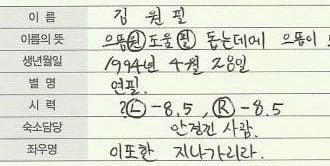 이 름 김 원 필
이름의 뜻 으뜸 원 도울 필 돕는데에 으뜸이
생년월일 1994년 4월 28일
별 명 연필.
시 력 L -8.5, R -8.5
숙소담당 안경낀 사람.
좌우명 이또한 지나가리라.